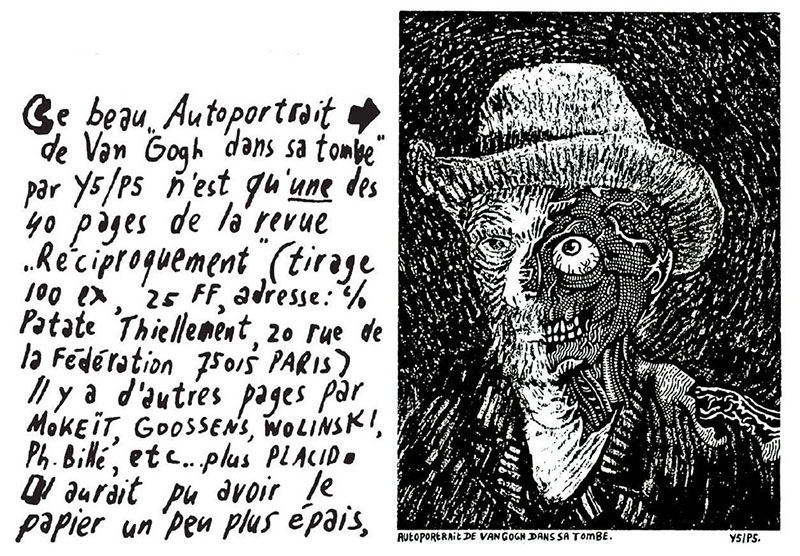 Ce beau „Autoportrait
de Van Gogh dans sa tombe"
par Y5/P5 n'est qu'une des
40 pages de la revue
„Réciproquement" (tirage
100 ex, 25 FF, adresse: c/o
Patate Thiellement, 20 rue de
la Fédération 75015 PARIS)
Il y a d'autres pages par
MOKEÏT, GOOSSENS, WOLINSKI,
Ph. Billé, etc...plus PLACID.
Il aurait pu avoir le
papier un peu plus épais,
AUTOPORTRAIT DE VAN GOGH DANS SA TOMBE. Y5/P5.